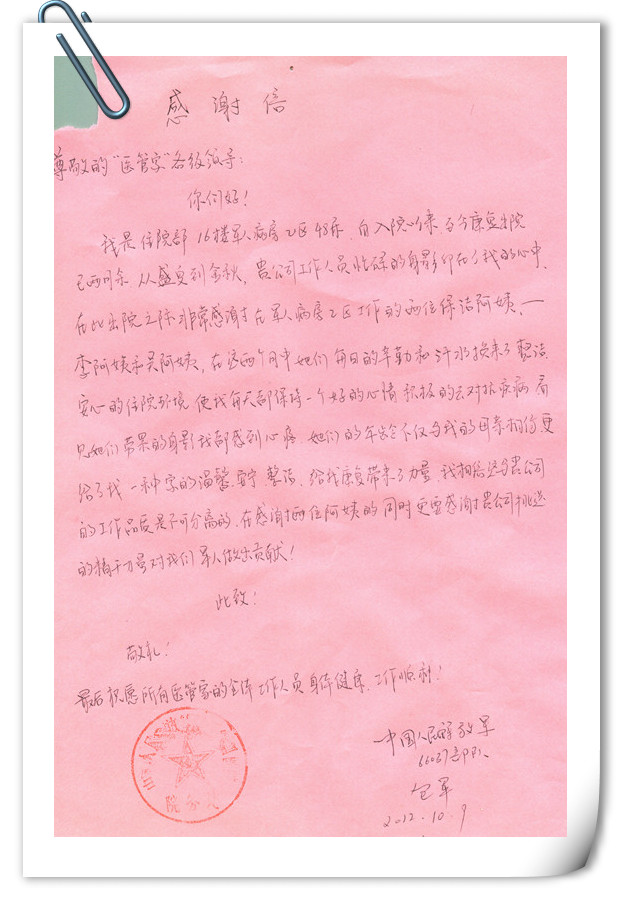 感谢信
尊敬的“医管家”各级领导:
你们好!
我是住院部16楼军人病房乙区48床,自入院以来至今康复出院
已两月余,从盛夏到金秋,贵公司工作人员忙碌的身影印在了我的心中,
在此出院之际非常感谢在军人病房乙区工作的两位保洁阿姨,—
李阿姨和吴阿姨,在这两个月中她们每日的辛勤和汗水换来了整洁
安心的住院环境 使我每天都保持一个好的心情 积极的去对抗疾病 看
见她们带累的身影我都感到心疼,她们的年龄不仅与我的母亲相仿更
给了我一种家的温馨 安宁 整洁,给我康复带来了力量,我相信这与贵公司
的工作品质是不可分离的,在感谢两位阿姨的同时更要感谢贵公司挑选
的精干力量对我们军人做出贡献!
此致!
敬礼!
最后祝愿所有医管家的全体工作人员身体健康,工作顺利!
中国人民解放军
66037部队
包军
2012.10.9